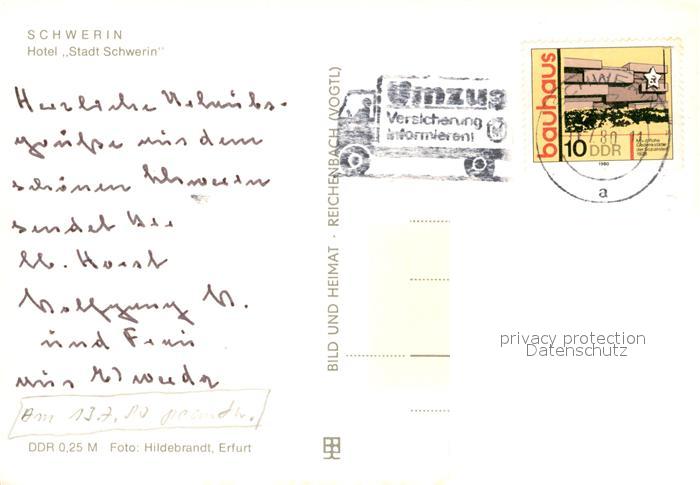 SCHWERIN
Hotel „Stadt Schwerin"
Herzliche Urlaubs-
grüße aus dem
schönen Schwerin
sendet Dir
Horst
Wolfgang
und Frau
Am 13.7.80
DDR 0,25 M Foto: Hildebrandt, Erfurt
BILD UND HEIMAT · REICHENBACH (VOGTL)
Umzug
Versicherung
informieren!
bauhaus
10 DDR
1980
7.80 11
a
privacy protection
Datenschutz